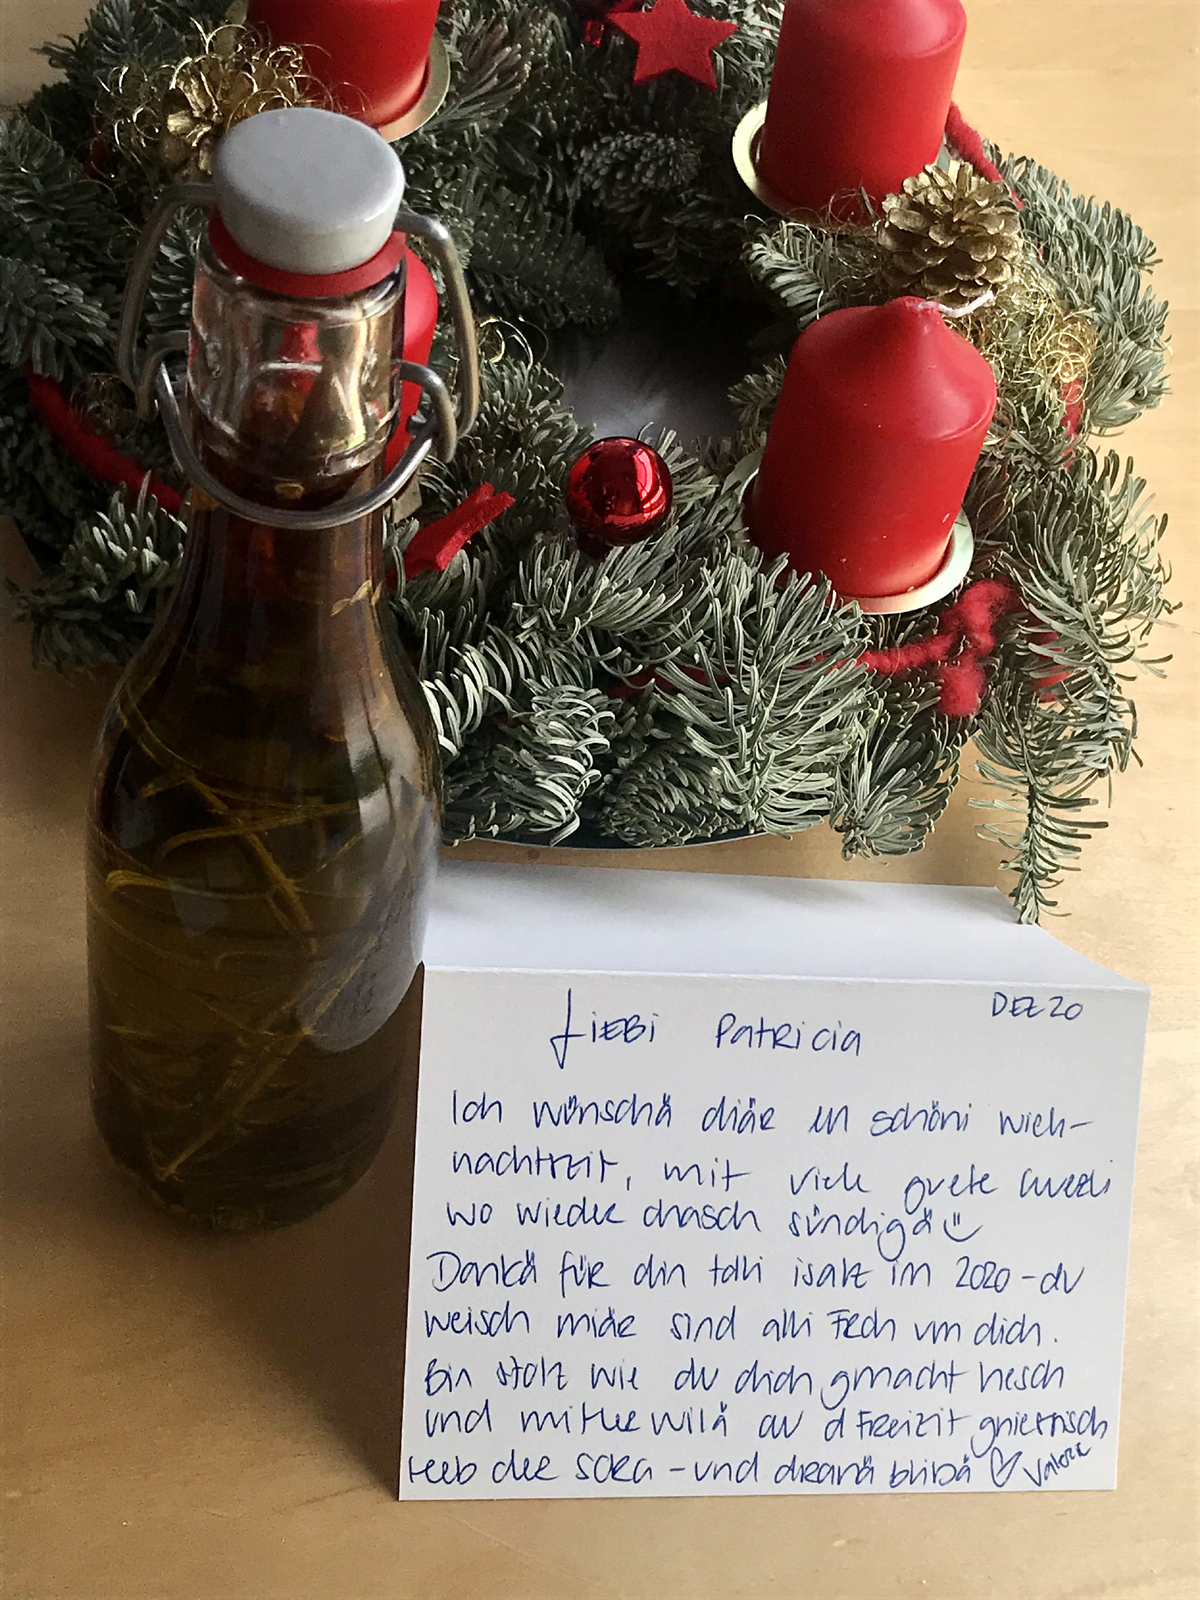 DEZ 20
Liebi Patricia
Ich wünschä diär en schöni Wieh-
nachtszit, mit viele guete
wo wieder dräsch sündigä
Dankä für din tolli isatz im 2020 - du
weisch miär sind alli Froh um dich.
Bin stolz wie du dich gmacht hesch
und mittlerwilä au d Freizit gniernsch
 - und dranä blibä